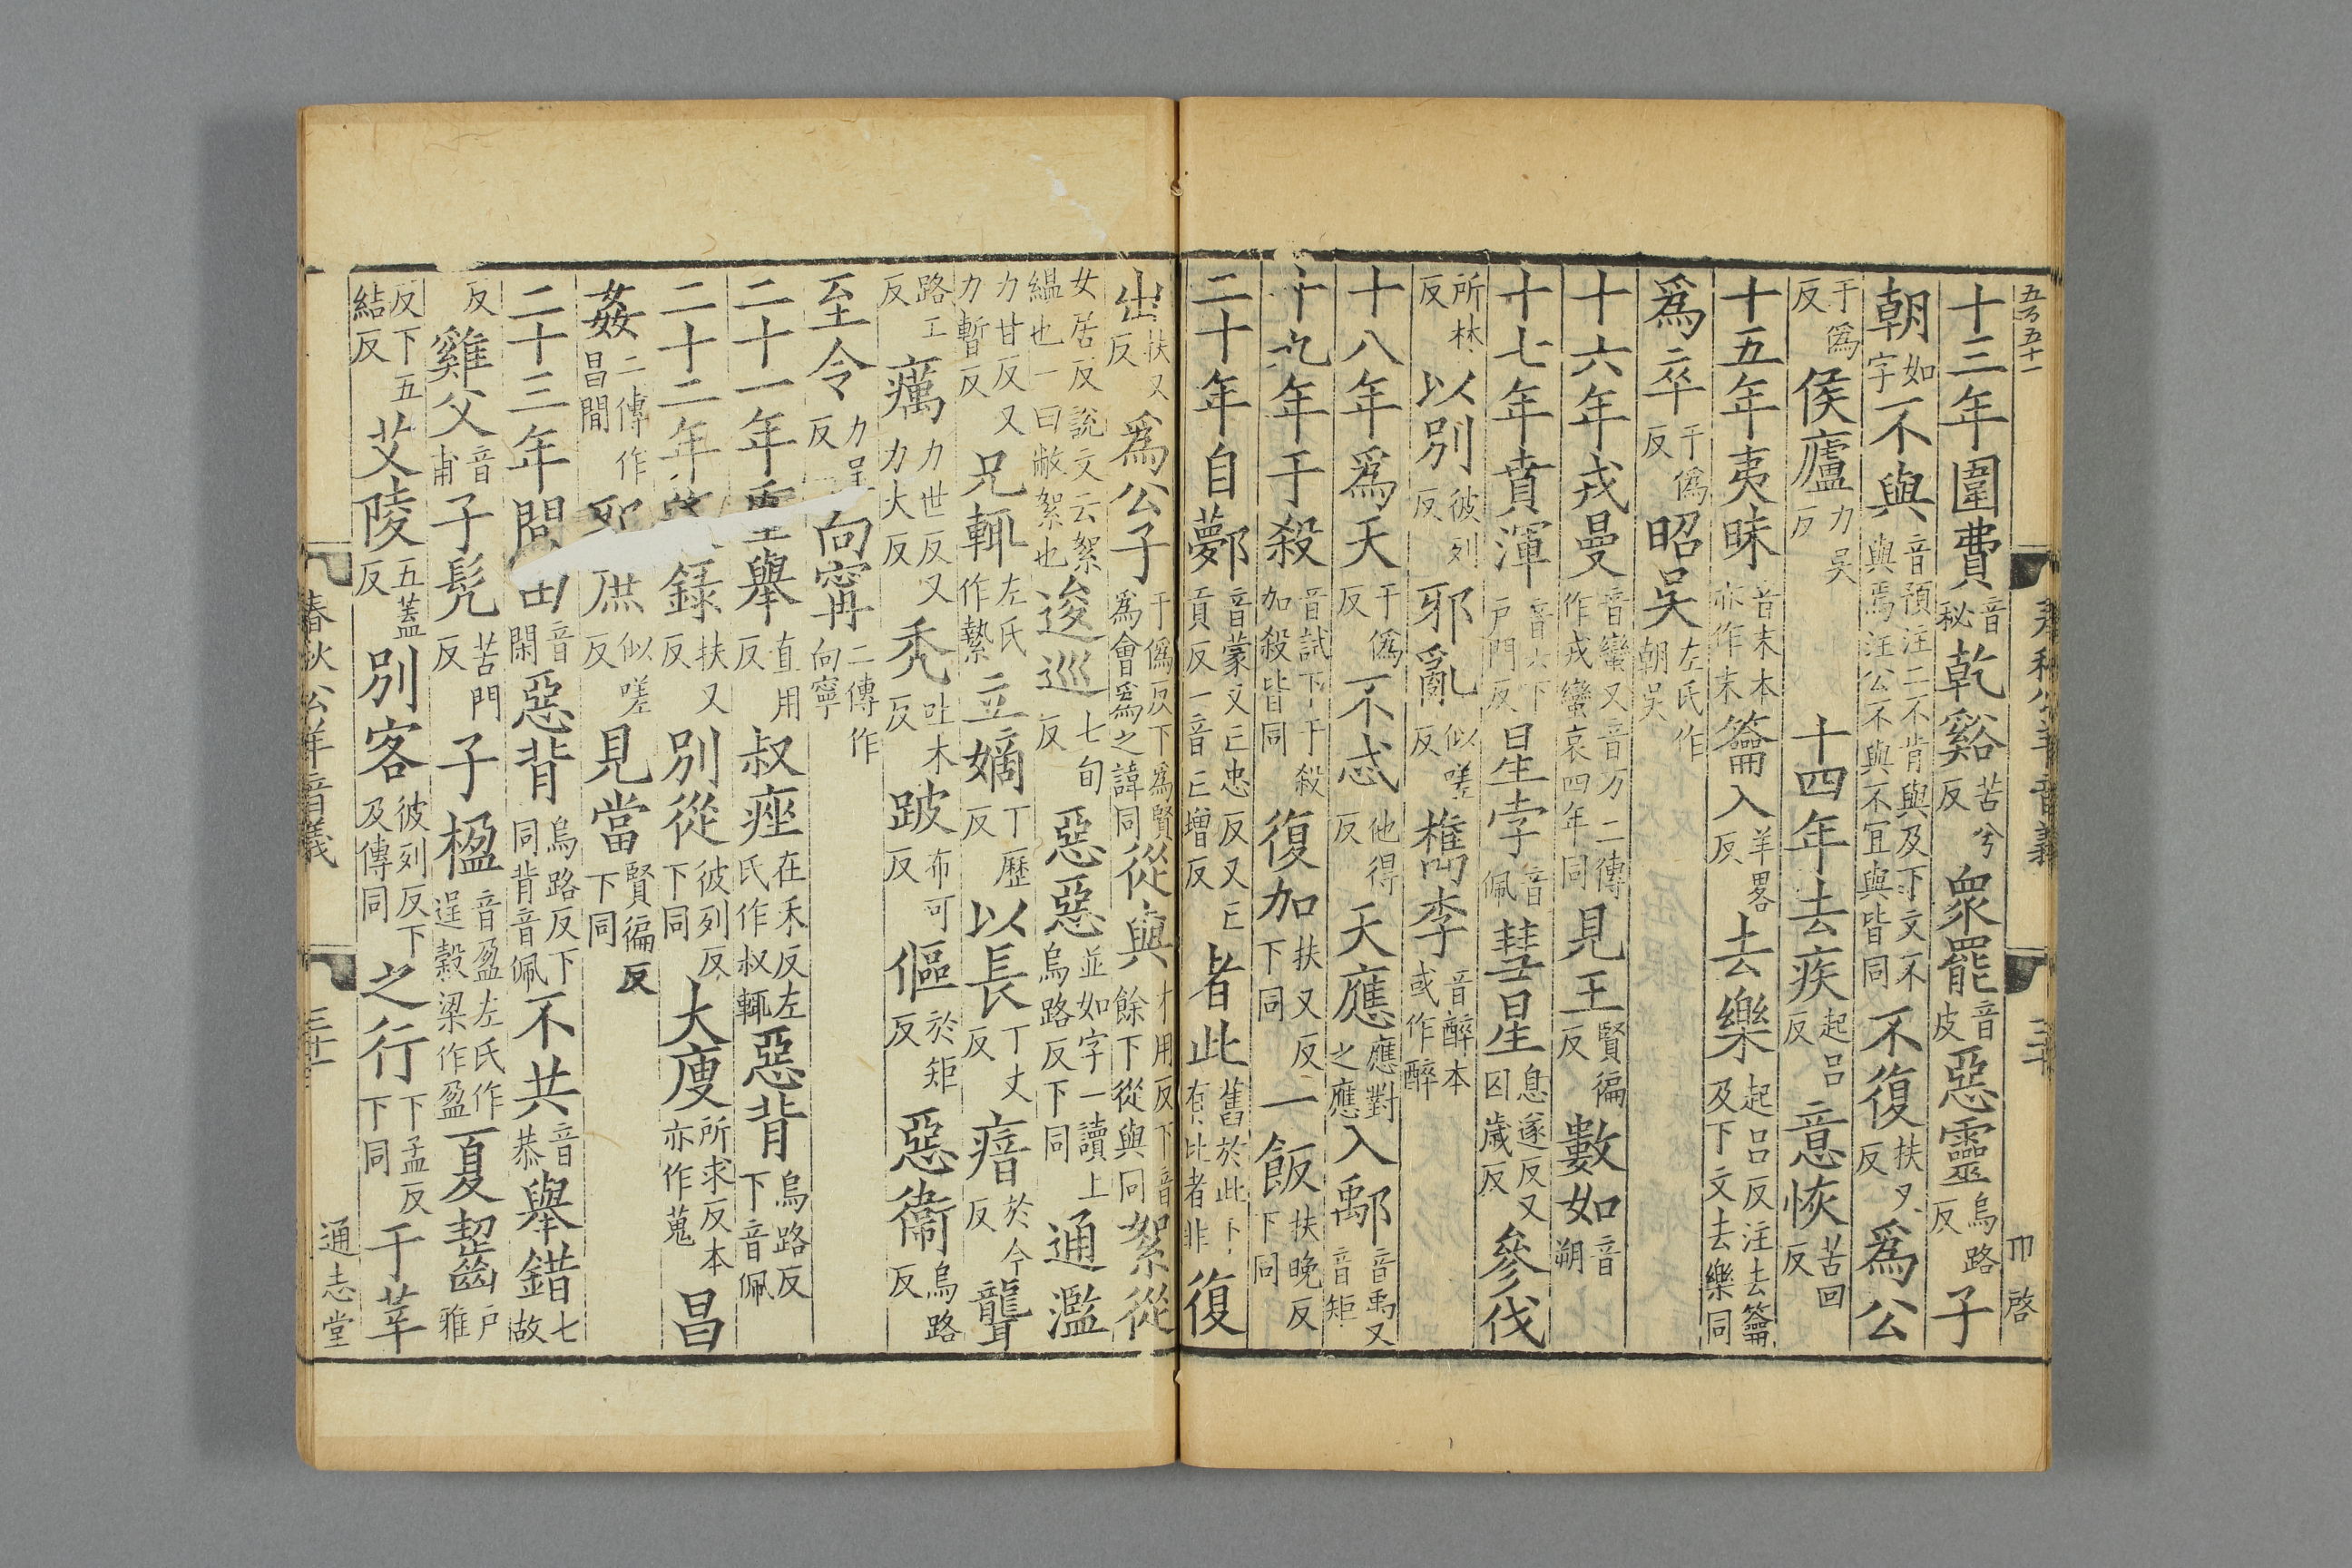 十三年圍費音秘乾谿苦兮反衆罷音皮惡靈烏路反子
朝如字不與音預注二不肯與及下文不與焉注公不與不宜與皆同不復扶又反爲公
于僞反侯廬力吳反十四年去疾起呂反意恢苦回反
十五年夷昧音末本亦作末籥入羊畧反去樂起呂反注去籥及下文去樂同
爲卒于僞反昭吳左氏作朝吳
十六年戎曼音蠻又音万二傳作戎蠻哀四年同見王賢徧反數如音朔
十七年賁渾音六下戶門反星孛音佩彗星息遂反又囚歲反參伐
所林反以別彼列反邪亂似嗟反檇李音醉本或作醉
十八年爲天于僞反不忒他得反天應應對之應入鄅音禹又音矩
十九年于殺音試下于殺加殺皆同復加扶又反下同一飯扶晚反下同
二十年自鄸音蒙又亡忠反又亡貢反一音亡增反者此舊於此下有比者非復
出扶又反爲公子于僞反下爲賢爲會爲之諱同從與才用反下音餘下從與同絮從
女居反說文云絮緼也一曰敝絮也逡巡七旬反惡惡並如字一讀上烏路反下同通濫
力甘反又力暫反兄輒左氏作縶立嫡丁歷反以長丁丈反瘖於今反聾
路工反癘力世反又力大反禿吐木反跛布可反傴於矩反惡衞烏路反
至令力呈反向甯二傳作向寧
二十一年重舉直用反叔痤在禾反左氏作叔輒惡背烏路反下音佩
二十二年錄扶又反別從彼列反下同大廋所求反本亦作蒐昌
姦二傳作昌閒邪庶似嗟反見當賢徧反下同
二十三年閒田音閑惡背烏路反下同背音佩不共音恭舉錯七故
反雞父音甫子髡苦門反子楹音盈左氏作逞穀梁作盈夏齧戶雅
反下五結反艾陵五蓋反別客彼列反下及傳同之行下孟反下同于莘
春秋公羊音義
三十一
通志堂